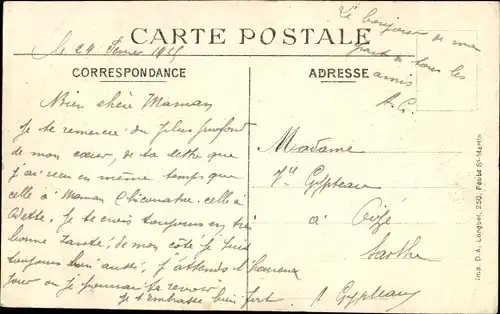 Le bonjour de ma
part à tous les
amis
A.G.
le 24 Février 1915
CARTE POSTALE
CORRESPONDANCE
ADRESSE
Bien chère Maman
Je te remercie du plus profond
de mon cœur, de ta lettre que
j'ai reçu en même temps que
celle à Maman celle à
Je te crois toujours en très
bonne santé, de mon côté je suis
toujours bien aussi, j'attends l'heureux
jour où je pourrai te revoir
je t'embrasse bien fort
A Gypteau
Madame
Vve Gypteau
à Oizé
Sarthe
Imp. D. A. Longuet, 250, Faubg St-Martin